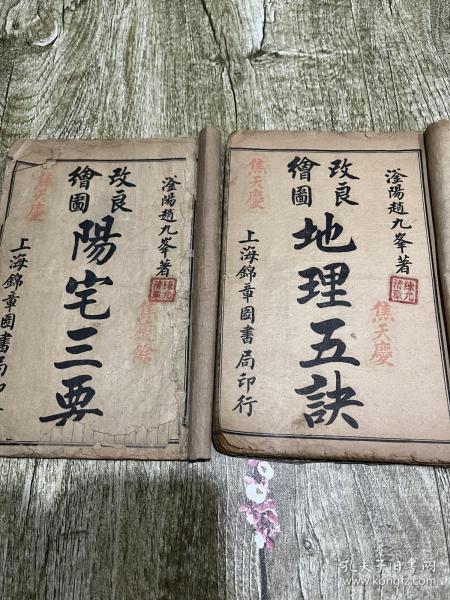 滏陽趙九峯著
改良
繪圖
陽宅三要
上海錦章圖書局印
焦天慶
滏陽趙九峯著
改良
繪圖
地理五訣
上海錦章圖書局印行
焦天慶
焦天慶
孔夫子旧书网
www.kongfz.com